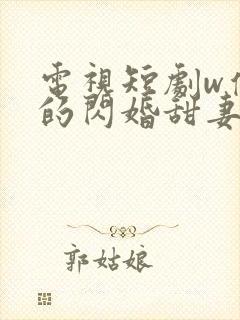 電視短劇w
的閃婚甜妻
郭姑娘